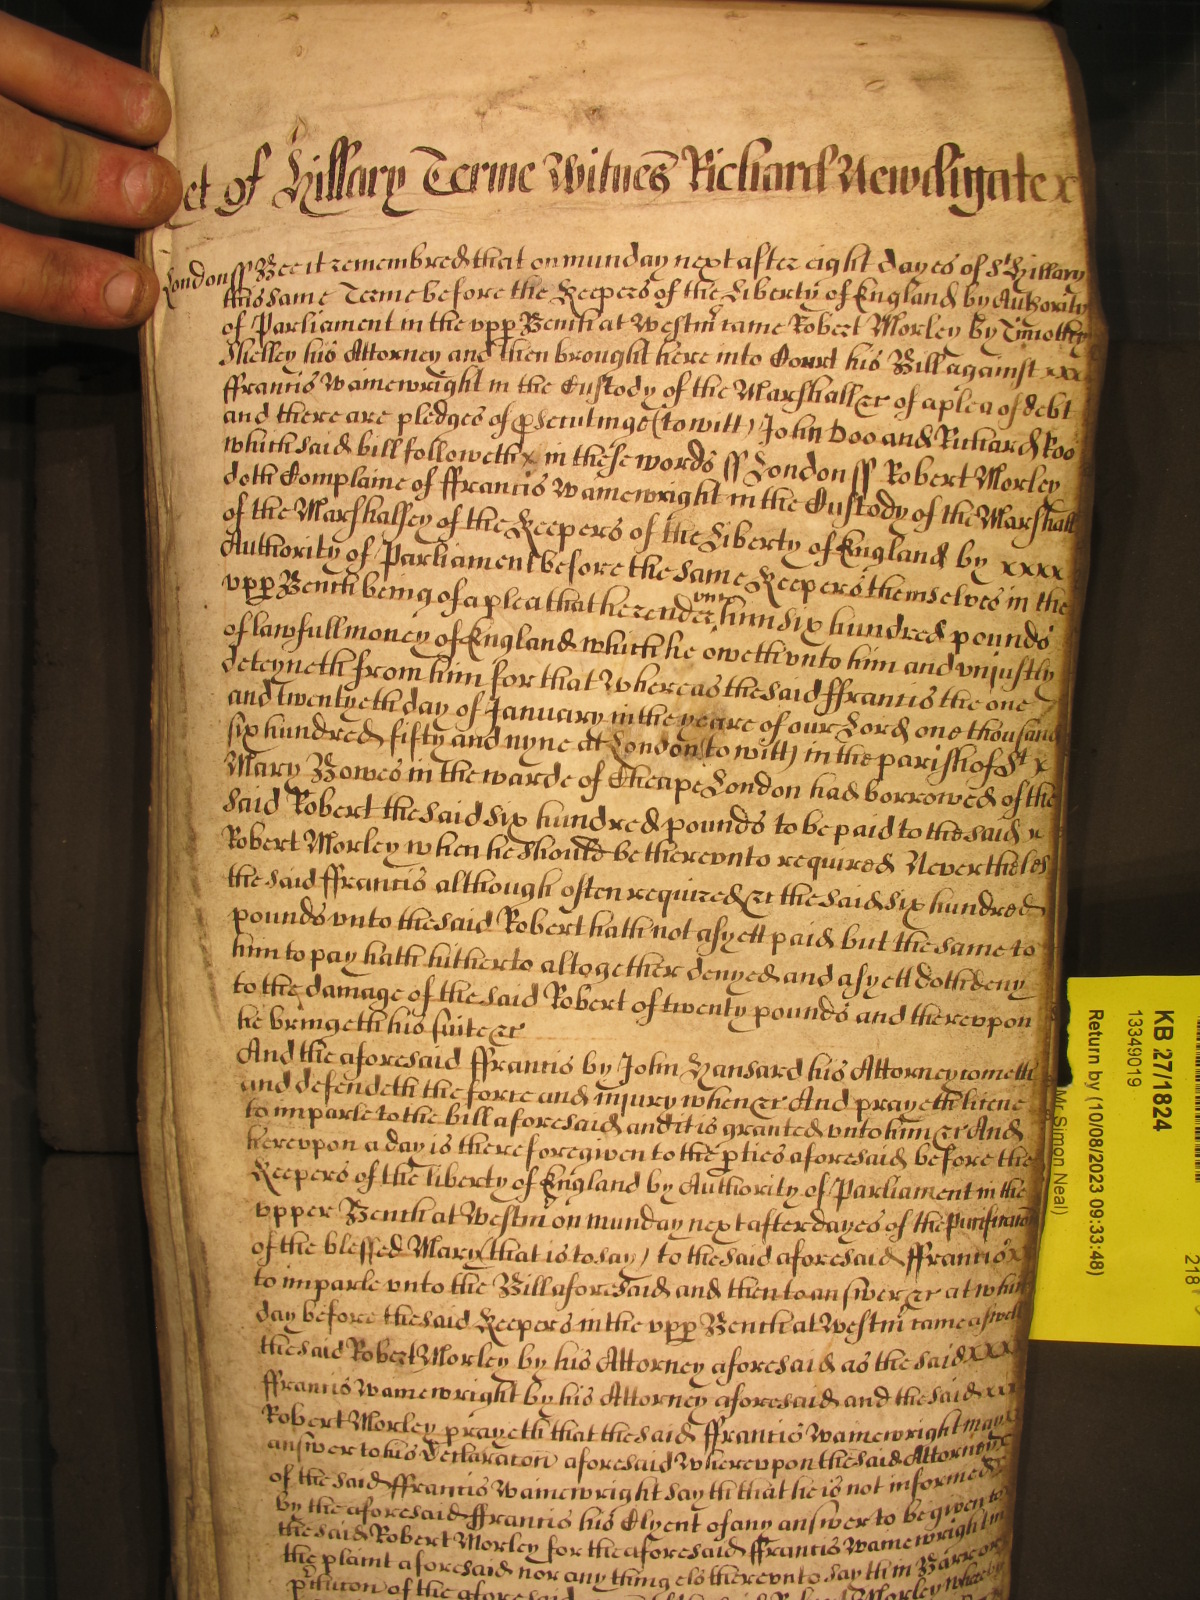 et of Hillary Terme Witnes Richard Newdigate x
London ss Bee it remembred that on munday next after eight dayes of St Hillary
this same Terme before the Keepers of the Liberty of England by Authority
of Parliament in the vpp Bench at Westm came Robert Morley by Timothy
Shelley his Attorney and then brought here into Court his Bill against xxx
ffrancis Wainewright in the Custody of the Marshall &c of a plea of debt
and there are pledges of psecutinge (to witt) John Doo and Richard Roo
which said bill followeth x in these words ss London ss Robert Morley
doth Complaine of ffrancis Wainewright in the Custody of the Marshall
of the Marshalsey of the Keepers of the Liberty of England by xxxx
Authority of Parliament before the same Keepers themselves in the
vpp Bench being of a plea that he render vnto him six hundred pounds
of lawfull money of England which he oweth vnto him and vnjustly
deteyneth from him for that Whereas the said ffrancis the one
and twentyeth day of January in the yeare of our Lord one thousand
six hundred fifty and nyne at London (to witt) in the parish of St x
Mary Bowes in the warde of Cheape London had borrowed of the
said Robert the said six hundred pounds to be paid to the said x
Robert Morley when he should be therevnto required Neverthelesse
the said ffrancis although often required &c the said six hundred
pounds vnto the said Robert hath not as yett paid but the same to
him to pay hath hitherto altogether denyed and as yett doth deny
to the damage of the said Robert of twenty pounds and therevpon
he bringeth his suite &c
And the aforesaid ffrancis by John Hansard his Attorney cometh
and defendeth the force and injury when &c And prayeth licence
to imparle to the bill aforesaid and it is granted vnto him &c And
herevpon a day is therefore given to the pties aforesaid before the
Keepers of the liberty of England by Authority of Parliament in the
vpper Bench at Westm on munday next after dayes of the Purificacon
of the blessed Mary (that is to say) to the said aforesaid ffrancis x
to imparle vnto the Bill aforesaid and then to answer &c at which
day before the said Keepers in the vpp Bench at Westm came aswell
the said Robert Morley by his Attorney aforesaid as the said xxxx
ffrancis Wainewright by his Attorney aforesaid and the said xxx
Robert Morley prayeth that the said ffrancis Wainewright may x
answer to his Declaracon aforesaid Wherevpon the said Attorney x
of the said ffrancis Wainewright sayth that he is not informed x
by the aforesaid ffrancis his Clyent of any answer to be given to
the said Robert Morley for the aforesaid ffrancis Wainewright in
the plaint aforesaid nor any thing els therevnto sayth in Barre or
of the aforesaid Robert Morley whereby
KB 27/1824
13349019
Return by (10/08/2023 09:33:48)
Mr Simon Neal)
218